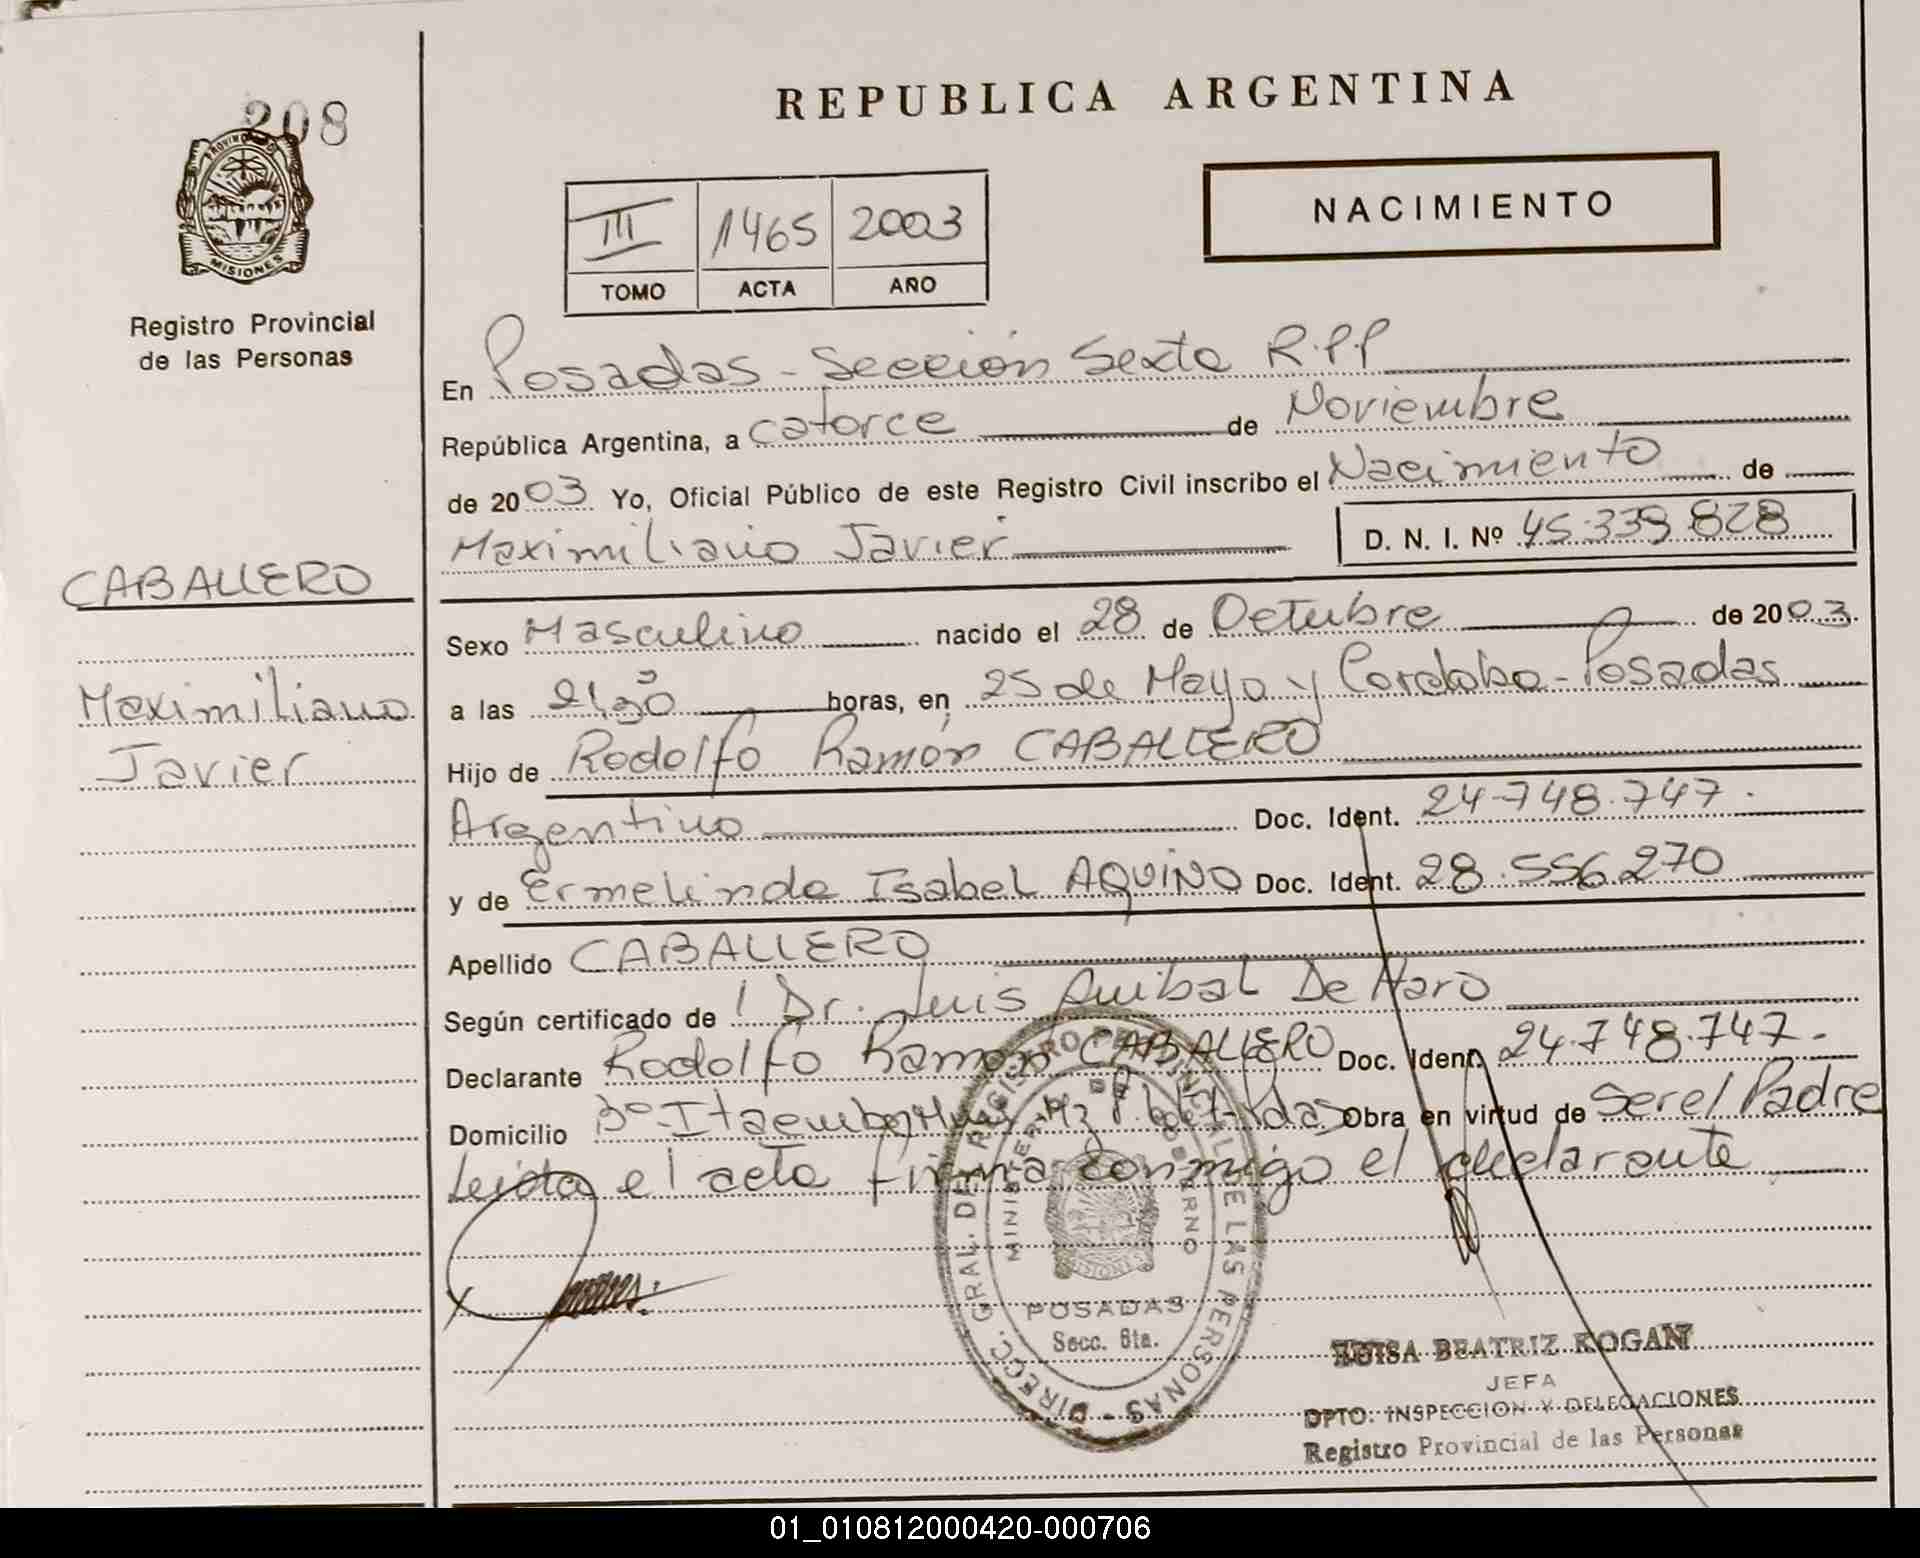 208
PROVINCIA DE
MISIONES
Registro Provincial
de las Personas
CABALLERO
Maximiliano
Javier
REPUBLICA ARGENTINA
III 1465 2003
TOMO ACTA AÑO
NACIMIENTO
En Posadas - Sección Sexta R.P.P
República Argentina, a catorce de Noviembre
de 2003 Yo, Oficial Público de este Registro Civil inscribo el Nacimiento de
Maximiliano Javier D. N. I. Nº 45.339.828
Sexo Masculino nacido el 28 de Octubre de 2003.
a las 21,30 horas, en 25 de Mayo y Cordoba - Posadas
Hijo de Rodolfo Ramón CABALLERO
Argentino Doc. Ident. 24.748.747.
y de Ermelinda Isabel AQUINO Doc. Ident. 28.556.270
Apellido CABALLERO
Según certificado de Dr. Luis Anibal De Haro
Declarante Rodolfo Ramon CABALLERO Doc. Ident. 24.748.747.
Domicilio Bº Itaembe Obra en virtud de Ser el Padre
Leida el acta firma conmigo el declarante
DIRECC. GRAL. DEL REGISTRO PROVINCIAL DE LAS PERSONAS
MINISTERIO DE GOBIERNO
MISIONES
POSADAS
Secc. 6ta.
LUISA BEATRIZ KOGAN
JEFA
DPTO: INSPECCION Y DELEGACIONES
Registro Provincial de las Personas
01_010812000420-000706